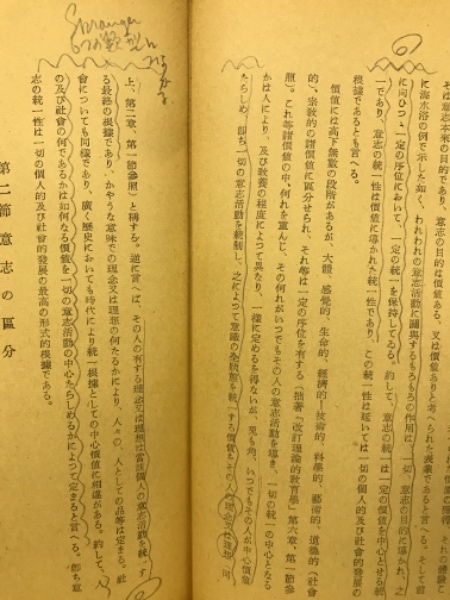 そは意志本来の目的であり、意志の目的は價値ある、又は價値ありと考へられた表象であると言へる。そして前
に海水浴の例で示した如く、われわれの意志活動に關與するもろもろの作用は、一切、意志の目的に導かれ、之
に向ひつゝ一定の序位において、一定の統一を保持してゐる。約して、意志の統一は一定の價値を中心とせる統
一であり、意志の統一性は價値に導かれた統一性であり、この統一性は延いては一切の個人的及び社會的發展の
根據であるとも言へる。
價値には高下無數の段階があるが、大體、感覺的、生命的、經濟的―技術的、科學的、藝術的、道德的(社會
的)、宗教的の諸價値に區分せられ、それ等は一定の序位を有する(拙著『改訂理論的教育學』第六章、第一節參
照)。これ等諸價値の中、何れを重んじ、その何れがいつでもその人の意志活動を導き、一切の統一の中心となる
かは人により、及び教養の程度によつて異なり、一樣に定めるを得ないが、兎も角、いつでもその人が中心價値
たらしめ、卽ち一切の意志活動を統制し、之によつて意識の全狀態を統一する價値をその人の理念又は理想(同
Spranger
の 類型
上、第二章、第一節參照)と稱する。逆に言へば、その人の有する理念又は理想は當該個人の意志活動を統一す
る最終の根據であり、かやうな意味での理念又は理想の何たるかにより、人々の、人としての品等は定まる。社
會についても同樣であり、廣く歷史においても時代により統一根據としての中心價値に相違がある。約して、人
の及び社會の何であるかは如何なる價値を一切の意志活動の中心たらしめるかによつて定まると言へる。卽ち意
志の統一性は一切の個人的及び社會的發展の最高の形式的根據である。
第二節 意志の區分